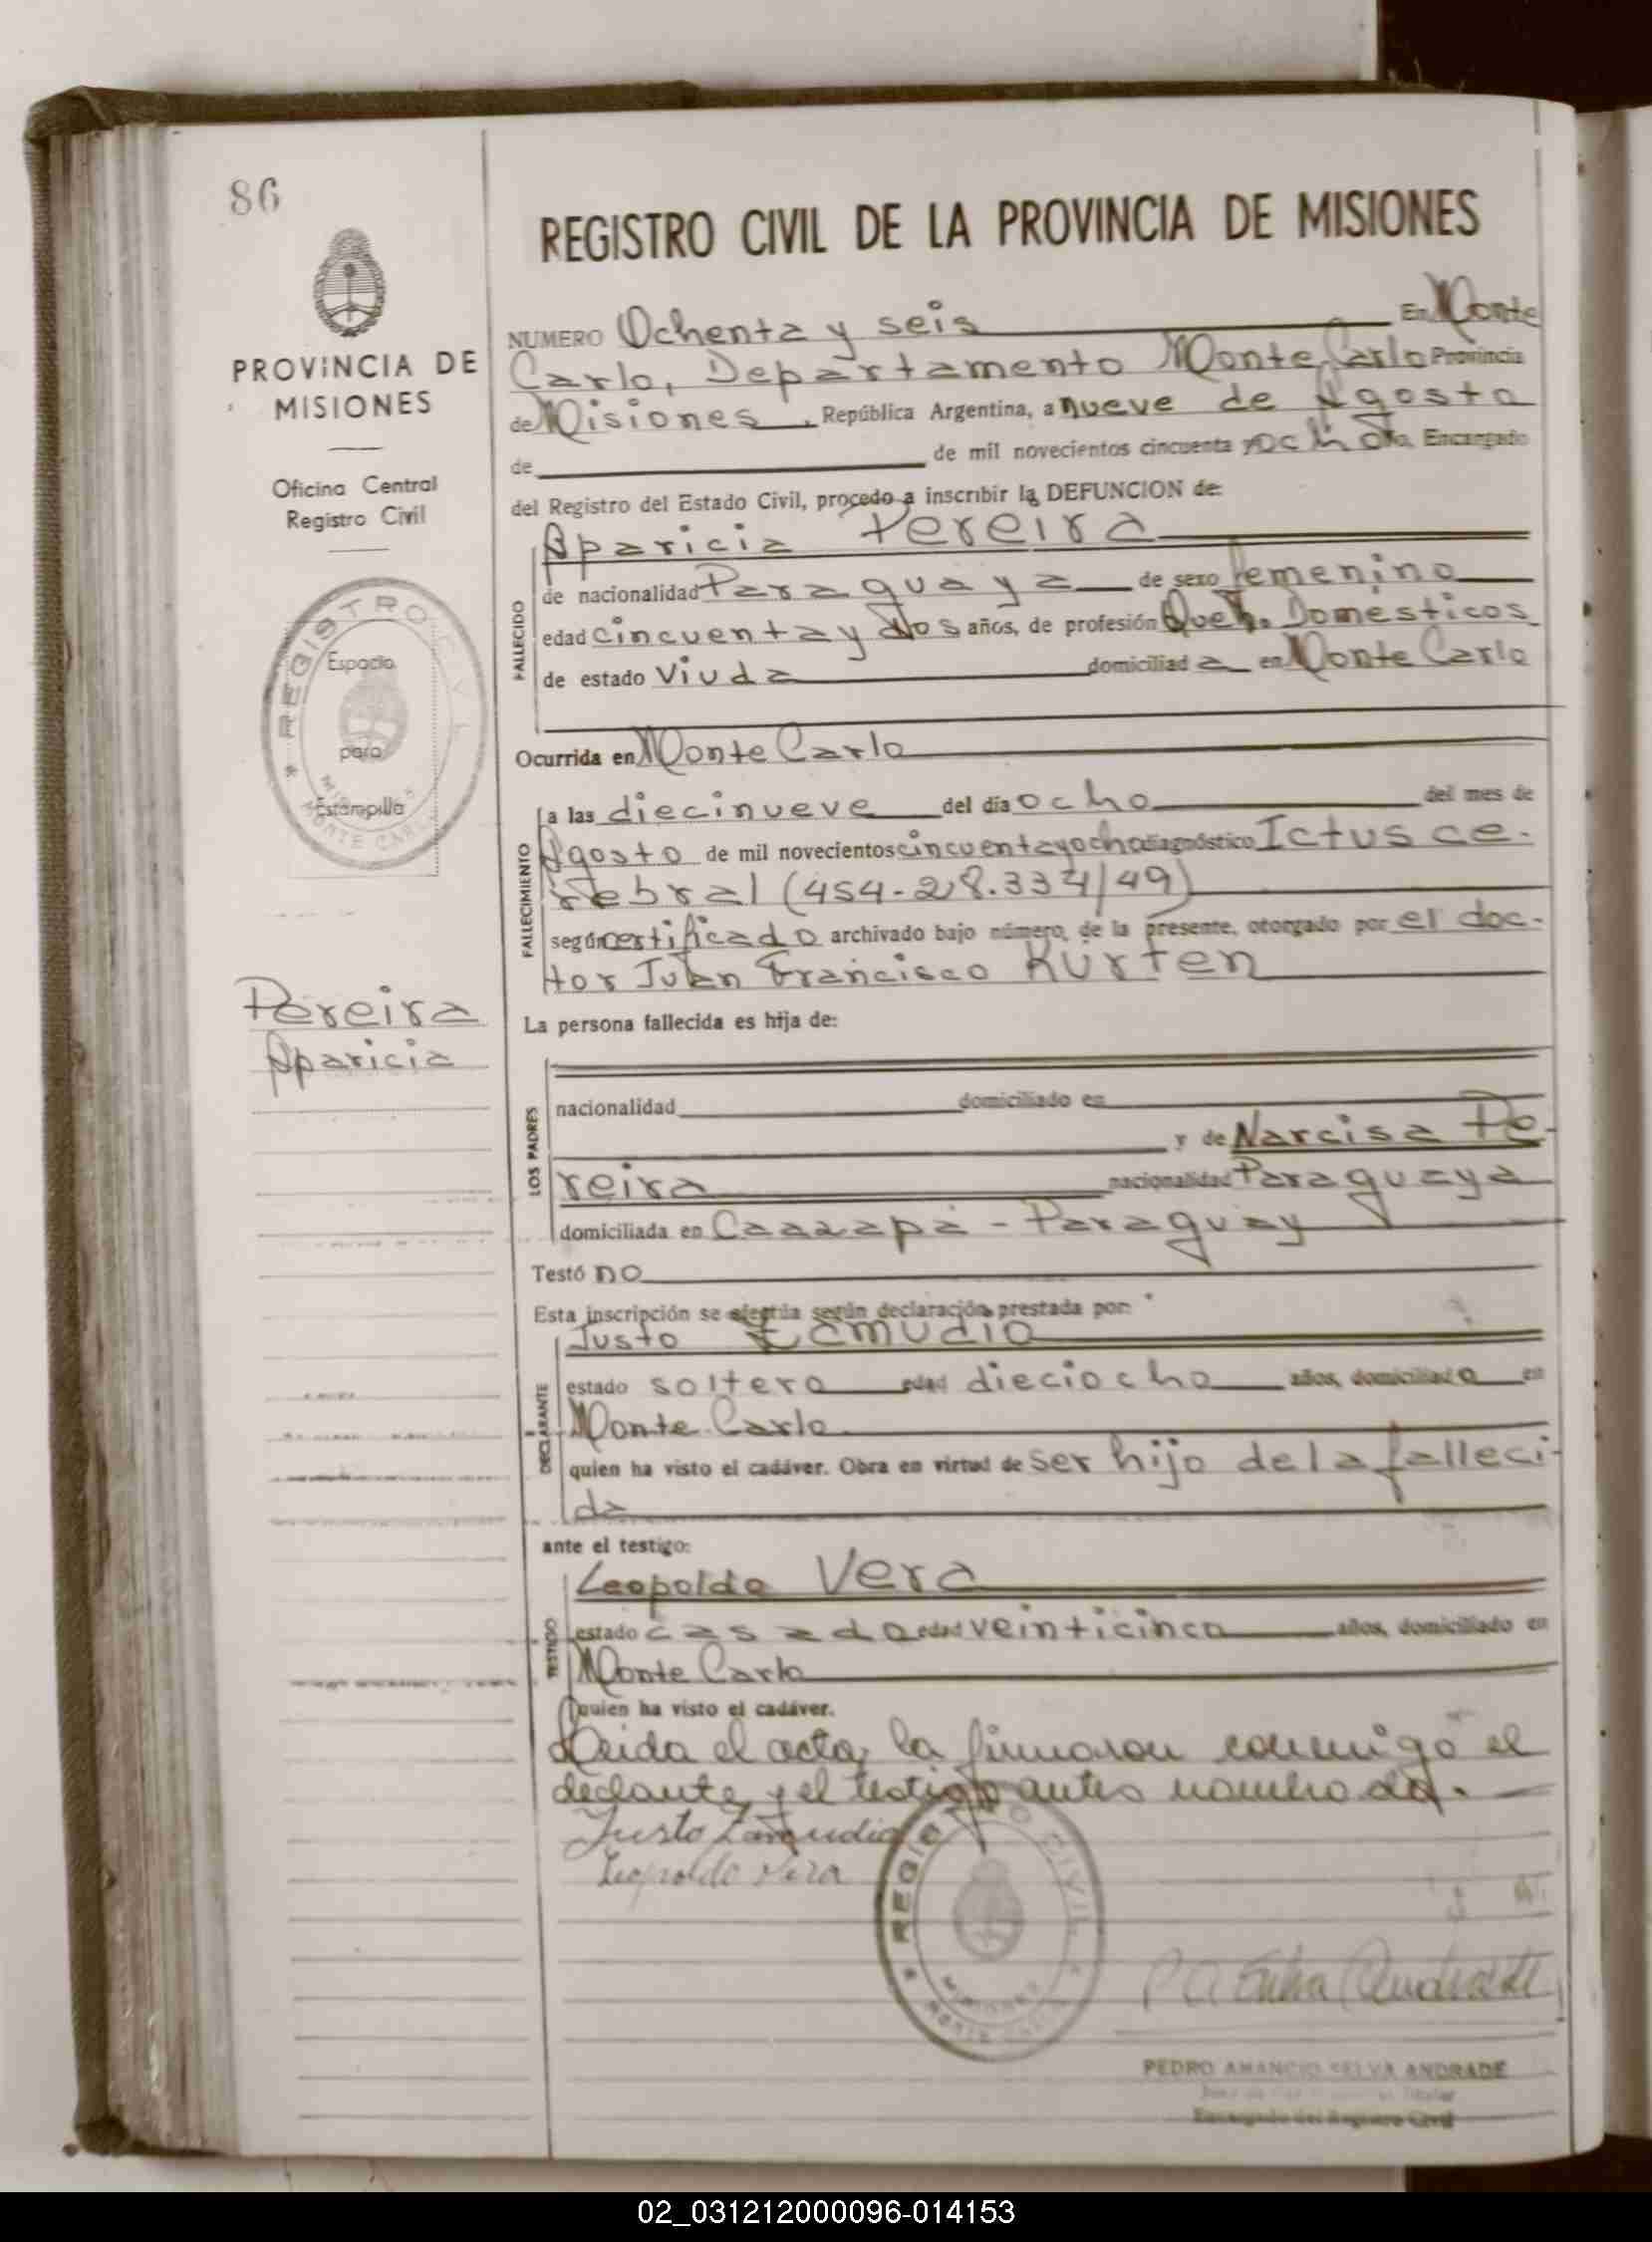 86
PROVINCIA DE
MISIONES
Oficina Central
Registro Civil
REGISTRO CIVIL
Espacio
para
Estampilla
MISIONES
MONTE CARLO
Pereira
Aparicia
REGISTRO CIVIL DE LA PROVINCIA DE MISIONES
NUMERO Ochenta y seis En Monte
Carlo, Departamento Monte Carlo Provincia
de Misiones, República Argentina, a nueve de Agosto
de de mil novecientos cincuenta y ocho Yo, Encargado
del Registro del Estado Civil, procedo a inscribir la DEFUNCION de:
Aparicia Pereira
FALLECIDO
de nacionalidad Paraguaya de sexo femenino
edad cincuenta y dos años, de profesión Queh. Domésticos
de estado Viuda domiciliada en Monte Carlo
Ocurrida en Monte Carlo
FALLECIMIENTO
a las diecinueve del día ocho del mes de
Agosto de mil novecientos cincuenta y ocho diagnóstico Ictus ce-
rebral (454-28.334/49)
según certificado archivado bajo número, de la presente, otorgado por el doc-
tor Juan Francisco Kürten
La persona fallecida es hija de:
LOS PADRES
nacionalidad domiciliado en
y de Narcisa Pe-
reira nacionalidad Paraguaya
domiciliada en Caaazapá - Paraguay
Testó no
Esta inscripción se efectúa según declaración prestada por:
Justo Zamudio
DECLARANTE
estado soltero edad dieciocho años, domiciliado en
Monte Carlo
quien ha visto el cadáver. Obra en virtud de ser hijo de la falleci-
da
ante el testigo:
Leopoldo Vera
TESTIGO
estado casado edad veinticinco años, domiciliado en
Monte Carlo
quien ha visto el cadáver.
Leida el acta, la firmaron conmigo el
declante y el testigo antes nombrado.
Justo Zamudio
Leopoldo Vera
REGISTRO CIVIL
MISIONES
MONTE CARLO
PEDRO AMANCIO SELVA ANDRADE
Encargado del Registro Civil
02_031212000096-014153